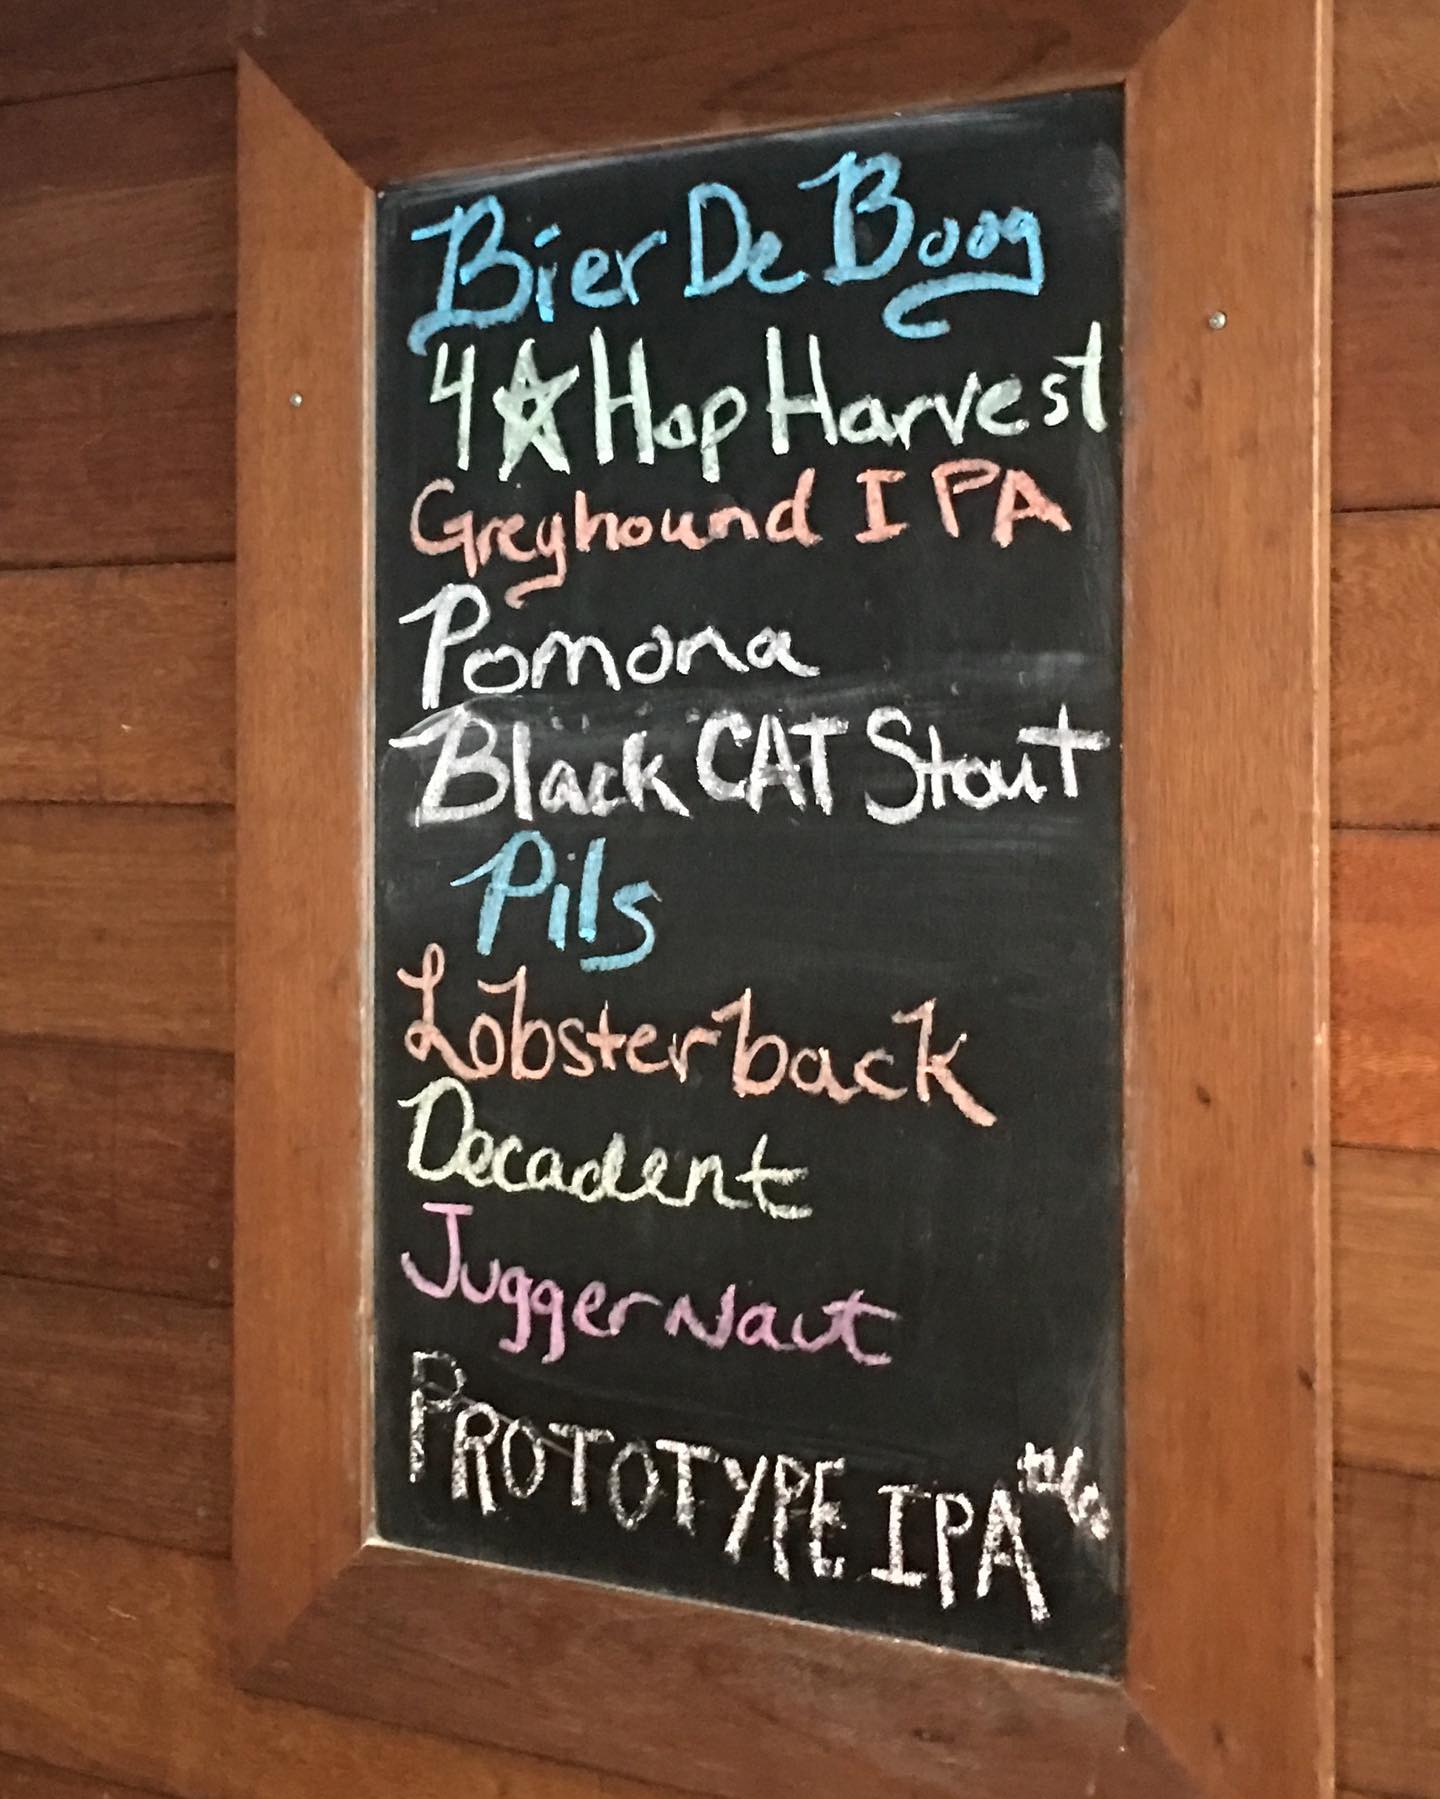 Bier De Boog
4☆Hop Harvest
Greyhound IPA
Pomona
Black CAT Stout
Pils
Lobsterback
Decadent
JuggerNaut
PROTOTYPE IPA